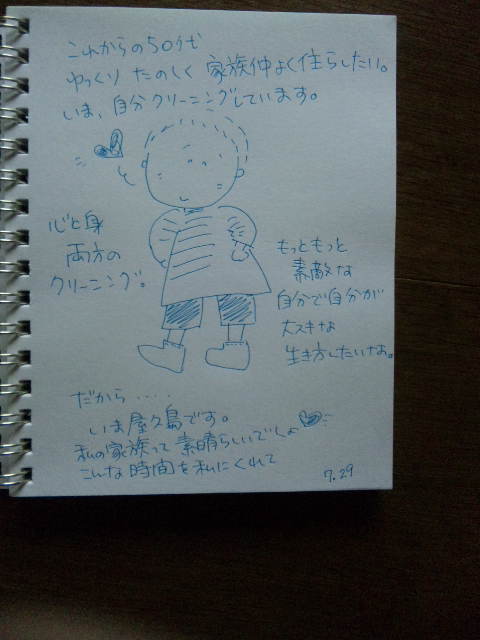 これからの50代
ゆっくり たのしく 家族仲よく住らしたい。
いま、自分クリーニングしています。
心と身
両方の
クリーニング。
もっともっと
素敵な
自分で自分が
大スキな
生き方したいナぁ。
だから....
いま屋久島です。
私の家族って素晴らしいでしょ
こんな時間を私にくれて
7.29